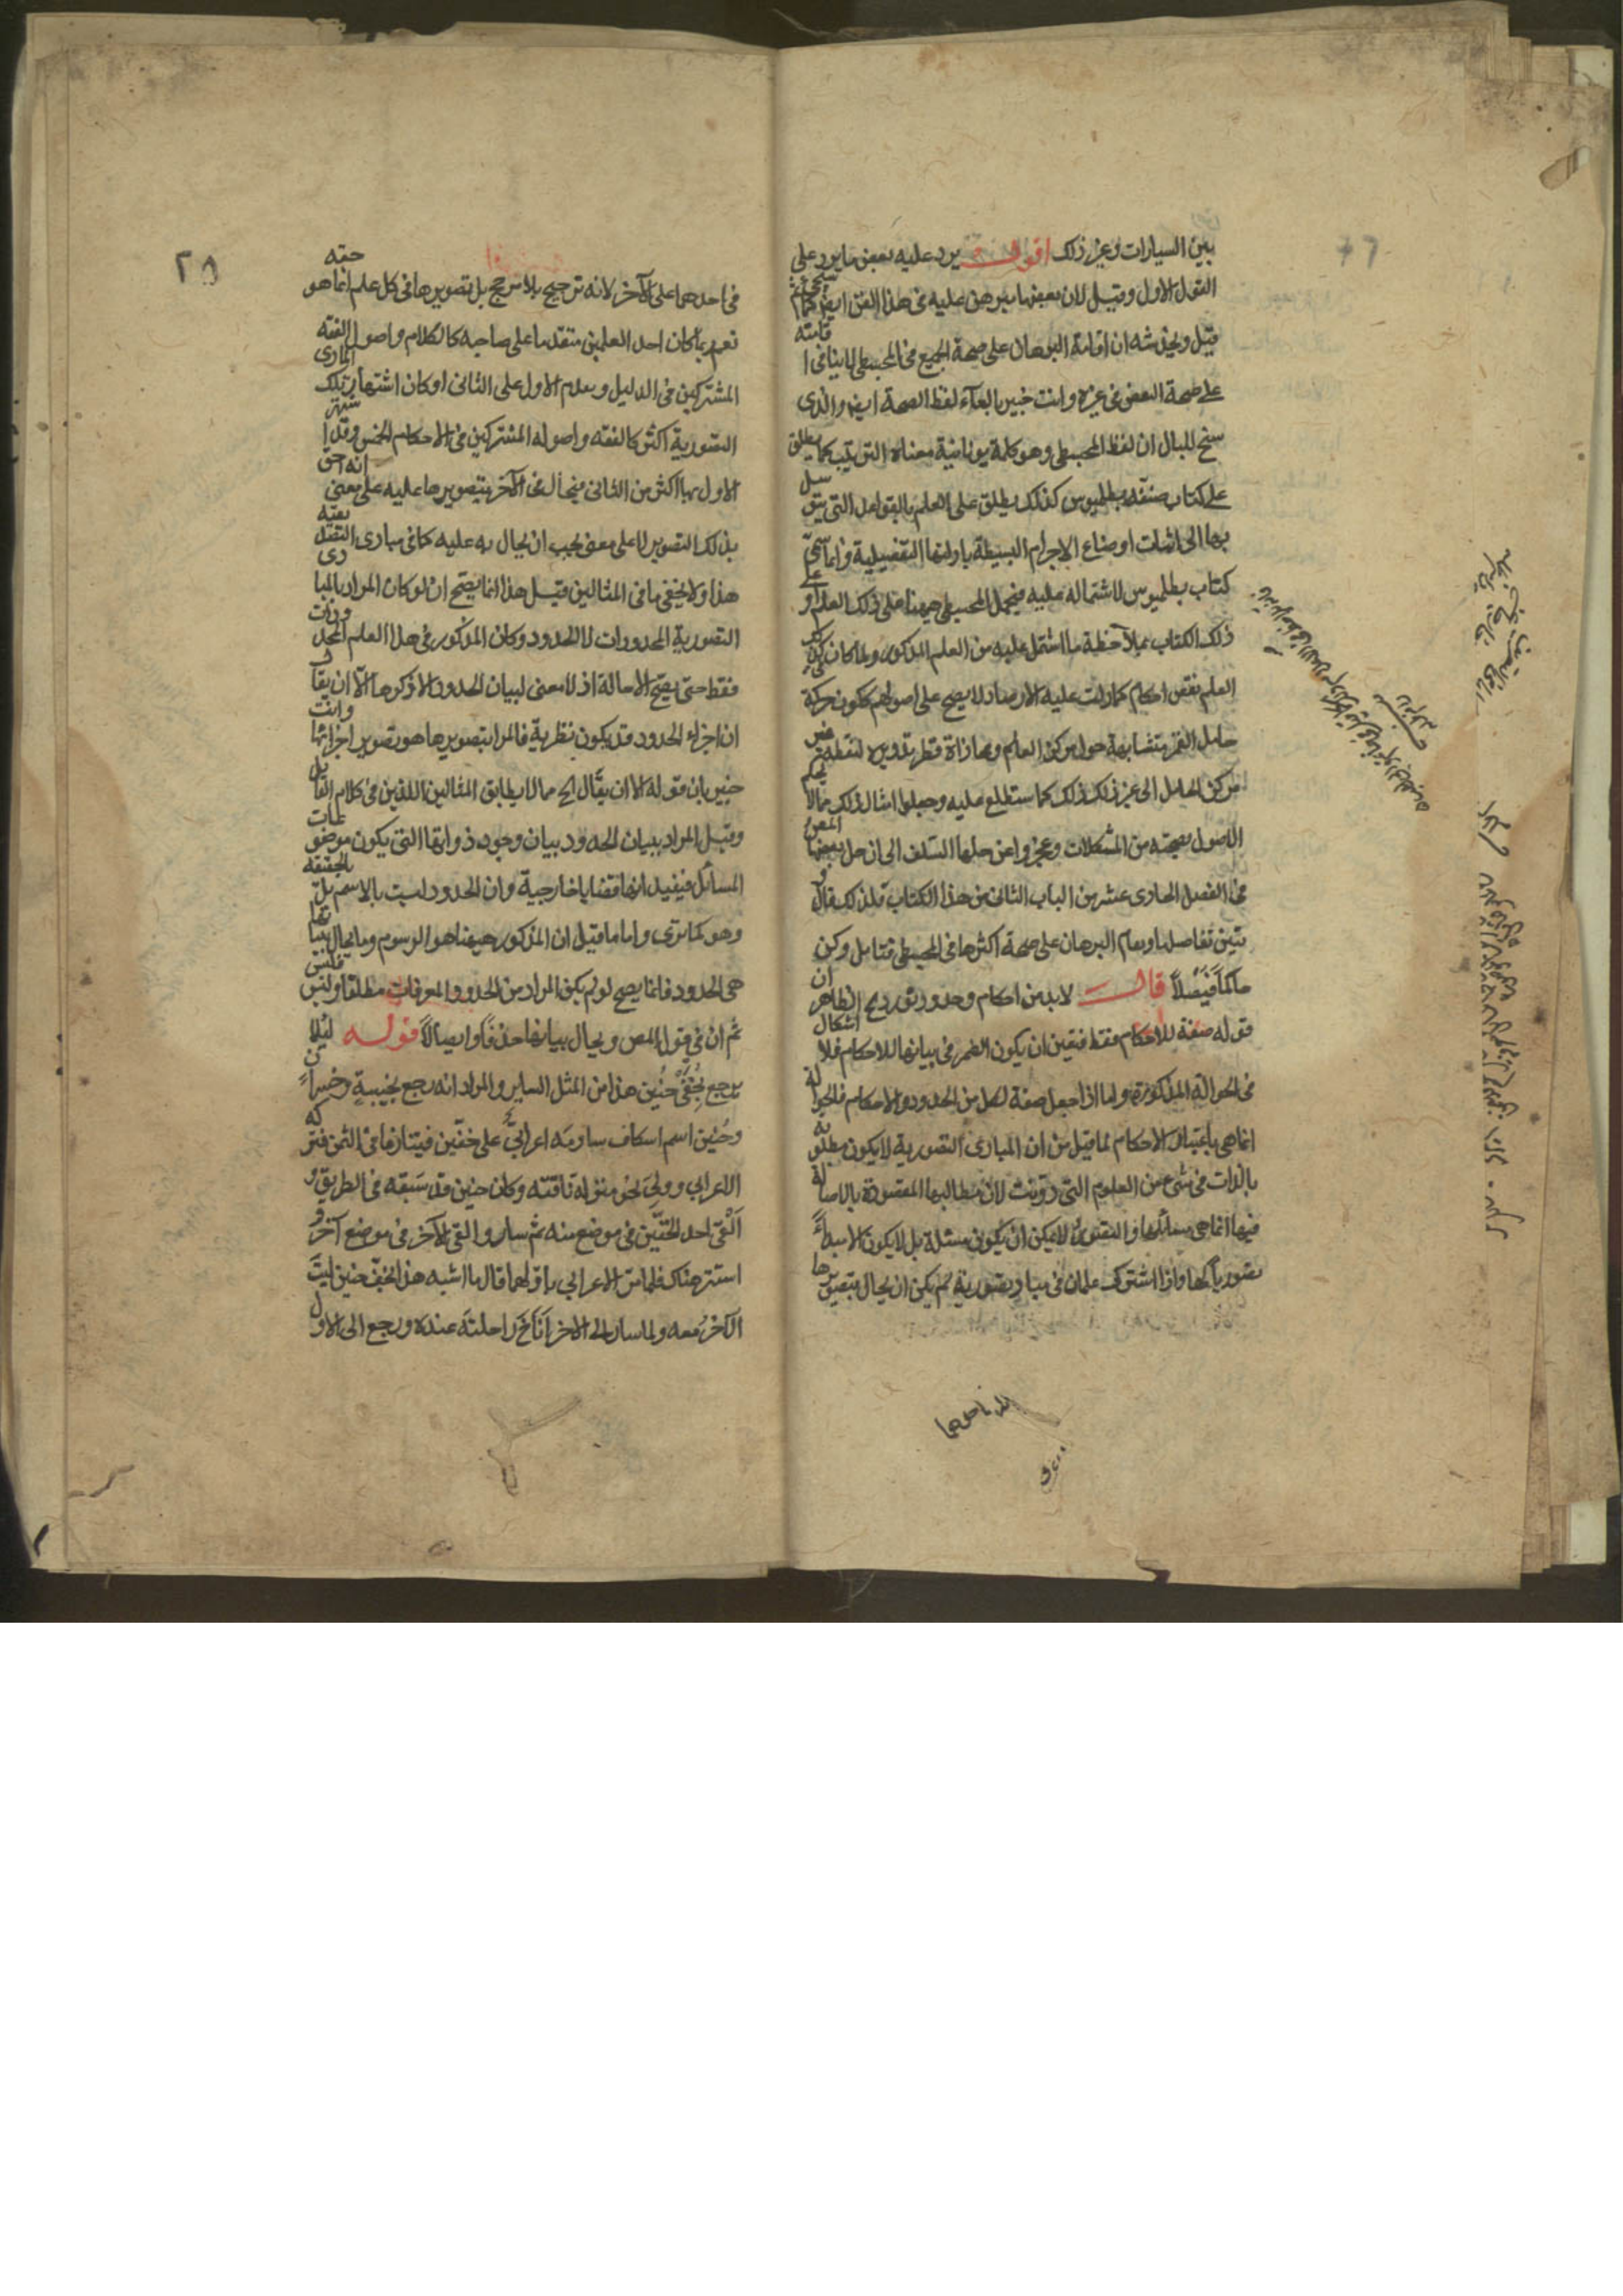 بين السيارات وغير ذلك اقول يرد عليه بعض ما يرد على
القول الاول وقيل لان بعضها يبرهن عليه في هذا الفن ايضا كما سيجئ
قيل ويخدشه ان اقامة البرهان على صحة الجميع في المجسطي لا ينافي اقامته
على صحة البعض في غيره وانت خبير بالغاء لفظ الصحة ايضا والذي
سنح للبال ان لفظ المجسطي وهو كلمة يونانية معناه الترتيب كما يطلق
على كتاب صنفه بطلميوس كذلك يطلق على العلم بالقواعد التي يتوسل
بها الى اثبات اوضاع الاجرام البسيطة بادلتها التفصيلية وانما سمي
كتاب بطلميوس لاشتماله عليه فيحمل المجسطي ههنا على ذلك العلم او على
ذلك الكتاب بملاحظة ما اشتمل عليه من العلم المذكور ولما كان في ذلك
العلم نقض احكام كما دلت عليه الارصاد لا يصح على اصولهم ككون حركة
حامل القمر متشابهة حول مركز العالم ومحاذاة قطر تدويره لنقطة غير
مركز الحامل الى غير ذلك كما ستطلع عليه وجعلوا امثال ذلك مما لا
الاصول بصحته من المشكلات وعجزوا عن حلها السلف الى ان حل المص بعضها
في الفصل الحادي عشر من الباب الثاني من هذا الكتاب فلذلك قال و
يتبين تفاصيلها ويقام البرهان على صحة اكثرها في المجسطي فتامل وكن
حاكما فيصلا قال لابد من احكام وحدود نوردها الظاهر ان
قوله صفة للاحكام فقط فتعين ان يكون الضمير في بيانها للاحكام فلا اشكال
في الحوالة المذكورة واما اذا جعل صفة لكل من الحدود والاحكام فالحوالة
انما هي باعتبار الاحكام لما قيل من ان المبادي التصورية لا يكون مطلوبة
بالذات في شيء من العلوم التي دونت لان مطالبها المقصودة بالاصالة
فيها انما هي مسائلها والتصور لا يمكن ان يكون مسئلة بل لا يكون الا مبدأ
تصوريا لها واذا اشترك علمان في مباد تصورية لم يكن ان يحال بتصويرها
في احدهما على الآخر لانه ترجيح بلا مرجح بل تصويرها في كل علم انما هو حقه
نعم ربما كان احد العلمين متقدما على صاحبه كالكلام واصول الفقه
المشتركين في الدليل ويعلم الاول على الثاني او كان اشتهار تلك المبادي
التصورية اكثر كالفقه واصوله المشتركين في الاحكام الخمس وقد اشتهر
الاول بها اكثر من الثاني فيحال في الآخر بتصويرها عليه على معنى انه احق
بذلك التصوير لا على معنى يجب ان يحال به عليه كما في مبادي التصديقية
هذا ولا يخفى ما في المثالين قيل هذا انما يصح ان لو كان المراد بالمبادي
التصورية المحدودات لا الحدود وكان المذكور في هذا العلم المحدودات
فقط حتى يصح الاحالة اذ لا معنى لبيان الحدود الا ذكرها الا ان يقال
ان اجزاء الحدود قد يكون نظرية فالمراد بتصويرها هو تصوير اجزائها وانت
خبير بان قوله الا ان يقال الخ مما لا يطابق المثالين اللذين في كلام القائل
وقيل المراد ببيان الحدود بيان وجود ذواتها التي يكون موضوعات
المسائل فيفيد انها قضايا خارجية وان الحدود ليست بالاسم بل بالحقيقة
وهو كما ترى واما ما قيل ان المذكور ههنا هو الرسوم وما يحال بيانها
هي الحدود فانما يصح لو لم يكن المراد من الحدود المعرفات مطلقا وليس فليس
ثم ان في قول المص ويحال بيانها حذفا وايصالا قوله لئلا
يرجع بخفي حنين هذا من المثل السائر والمراد انه رجع بخيبة وخسران
وحنين اسم اسكاف ساومه اعرابي على خفين فيتنازعا في الثمن فتركه
الاعرابي وولى نحو منزله ناقته وكان حنين قد سبقه في الطريق و
ألقى احد الخفين في موضع منه ثم سار والقى الآخر في موضع آخر و
استتر هناك فلما مر الاعرابي باولهما قال ما اشبه هذا بخف حنين ليت
الآخر معه ولما سار الى الاخر أناخ راحلته عنده ورجع الى الاول